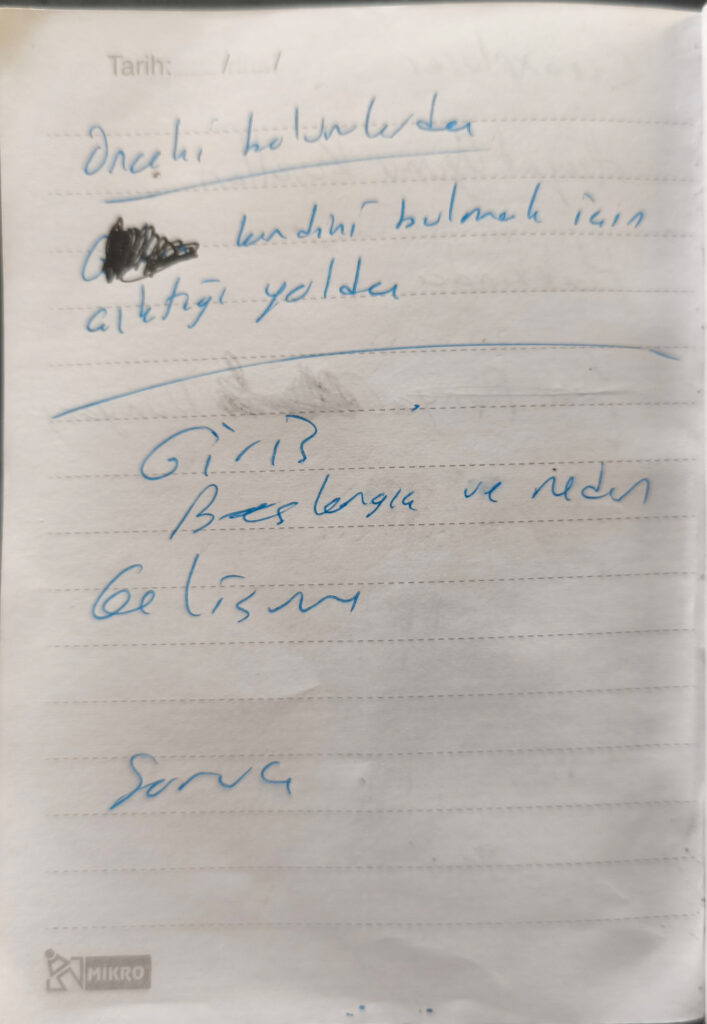 Tarih: / /
Önceki bölümlerde
kendini bulmak için
çıktığı yolda
Giriş
Başlangıç ve neden
Gelişme
Sonuç
MİKRO